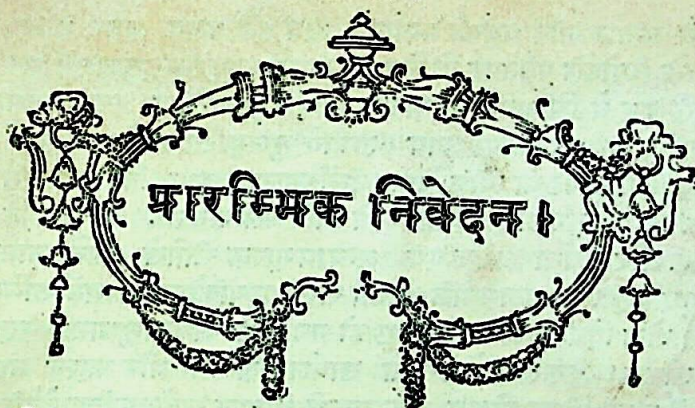 प्रारम्भिक निवेदन।